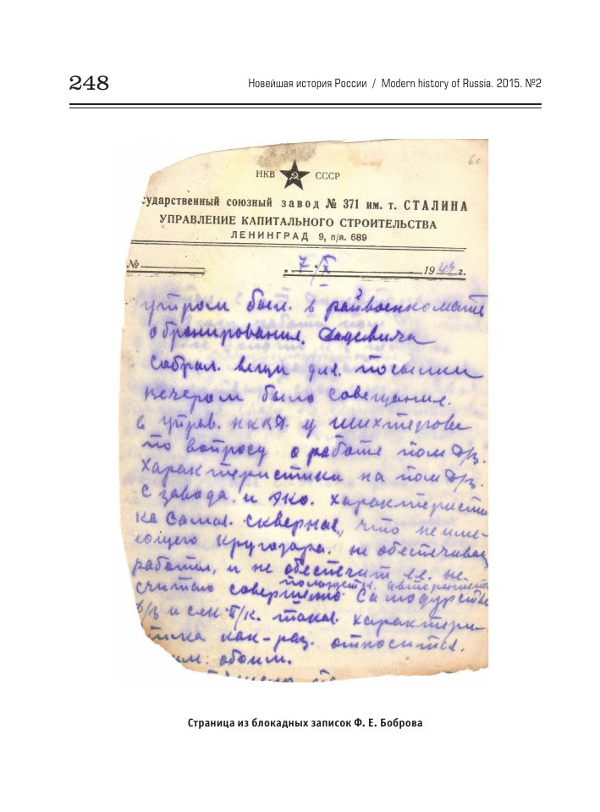 248
Новейшая история России / Modern history of Russia. 2015. №2
60
НКВ СССР
сударственный союзный завод № 371 им. т. СТАЛИНА
УПРАВЛЕНИЕ КАПИТАЛЬНОГО СТРОИТЕЛЬСТВА
ЛЕНИНГРАД 9, п/я. 689
№ 7/X 1942 г.
утром был. в райвоенкомате
о бронирования.
собрал. вещи для. посылки
вечером было совещания.
в управ. НКВД. у
по вопросу о работе пом
характеристики на пом
с завода. и характеристи
ка самая. скверная, что не име-
ющего кругозара. не обеспечивает
работы, и не обеспечит ее. не.
полностью.
считаю совершенно. Самодурство
и такая. характери-
тика как-раз. относится.
им. обоим.
Страница из блокадных записок Ф. Е. Боброва